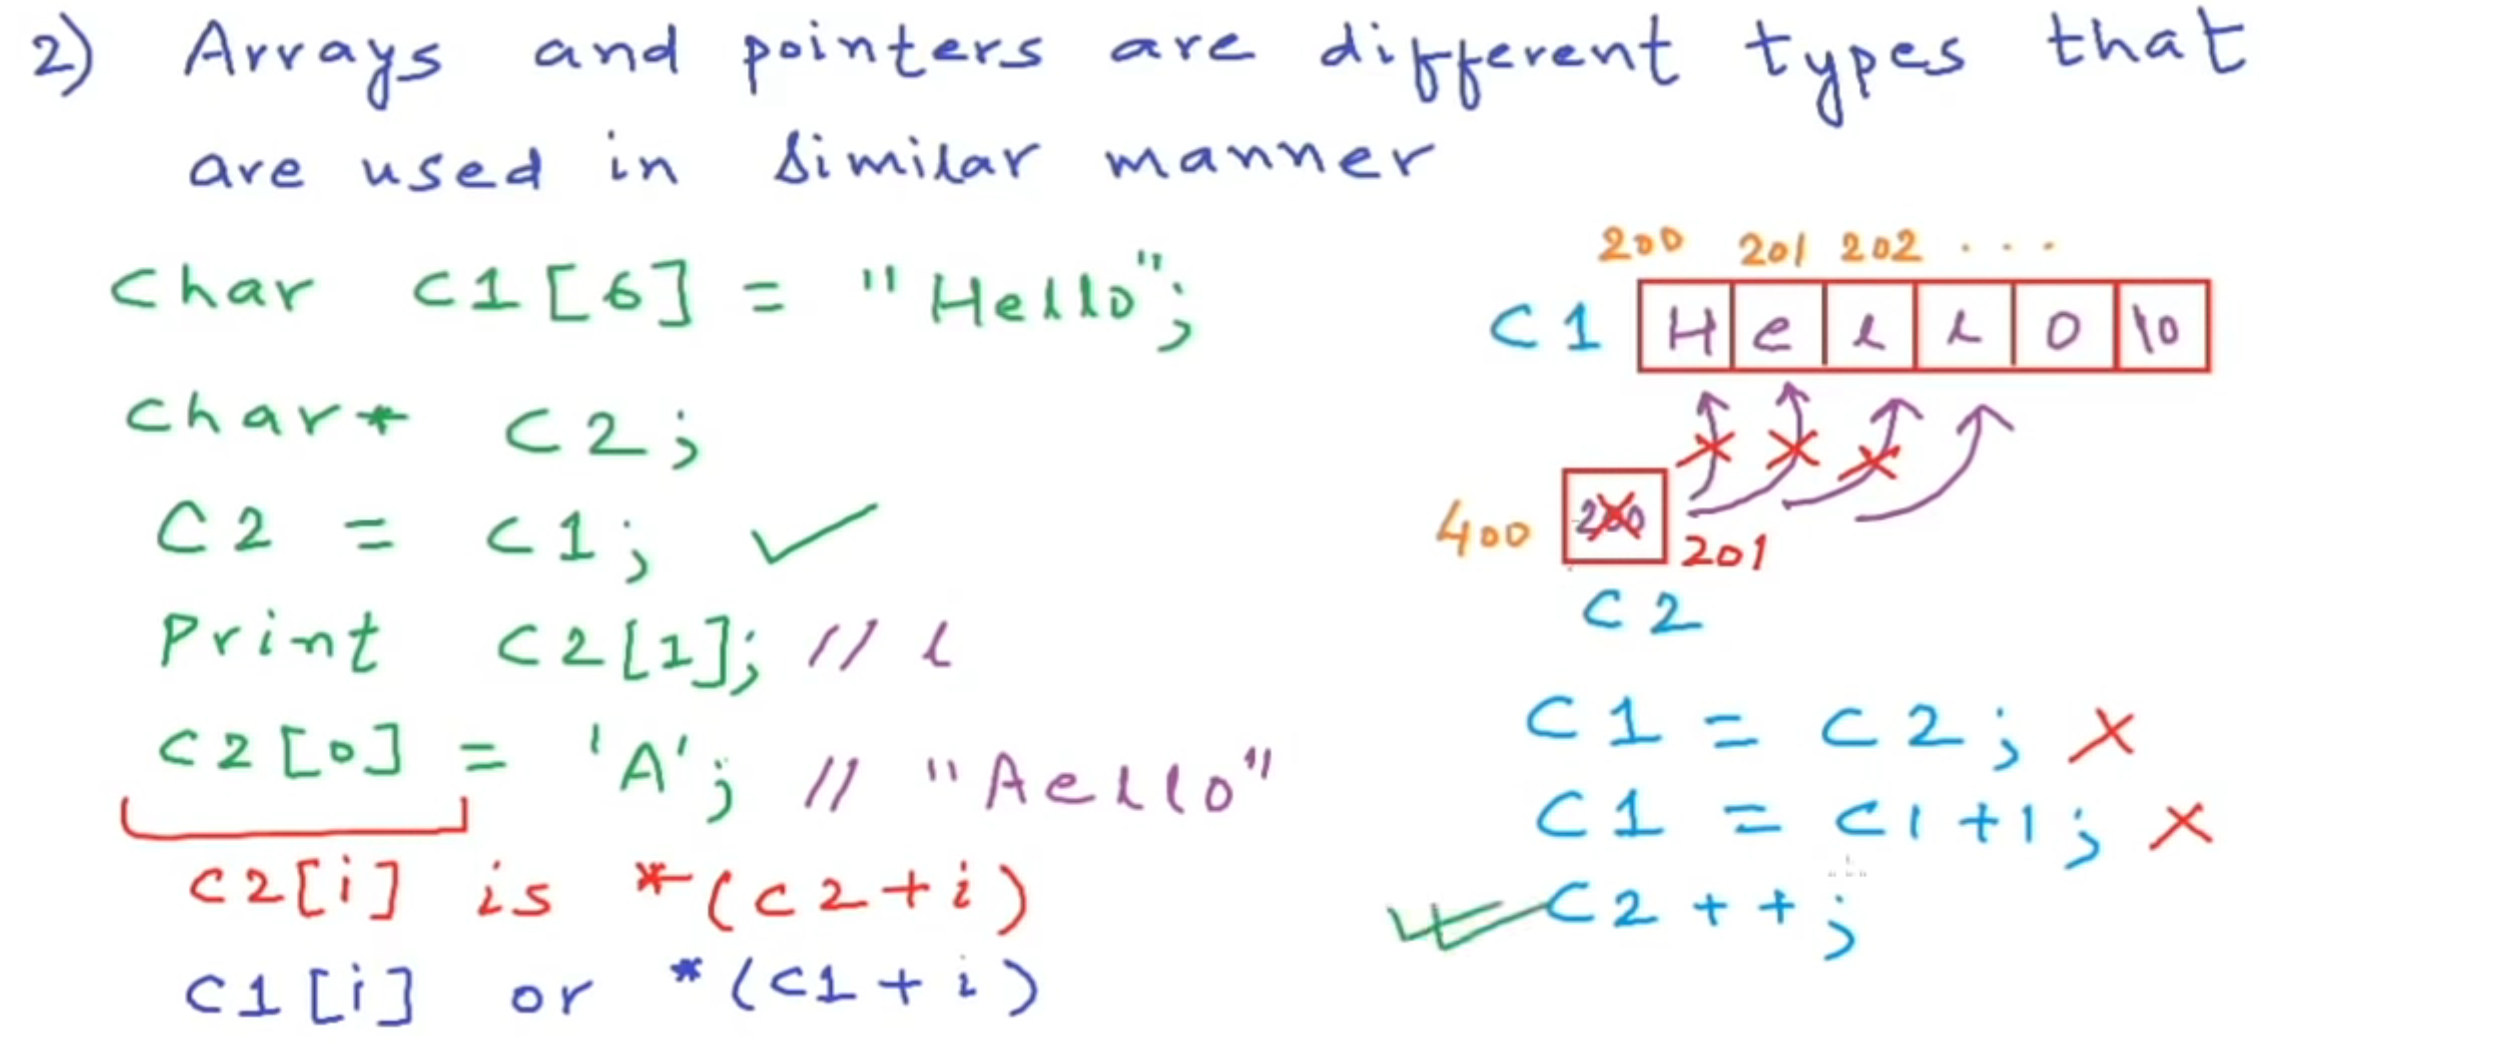 2) Arrays and pointers are different types that
are used in similar manner
Char C1[6] = "Hello";
char* C2;
C2 = C1; ✓
Print C2[1]; // l
C2[0] = 'A'; // "Aello"
C2[i] is *(C2+i)
C1[i] or *(C1+i)
200 201 202 ...
C1 H e l l o \0
400 200 201
C2
C1 = C2; X
C1 = C1+1; X
✓✓ C2++;